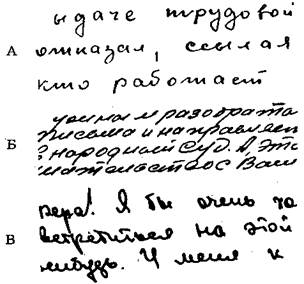 ыдаче трудовой
А отказал, ссылая
кто работает
разобрата
письма и направляет
Б народный суд. А эта
Ваш
Вера! Я бы очень хо
В встретиться на этой
нибудь. У меня к